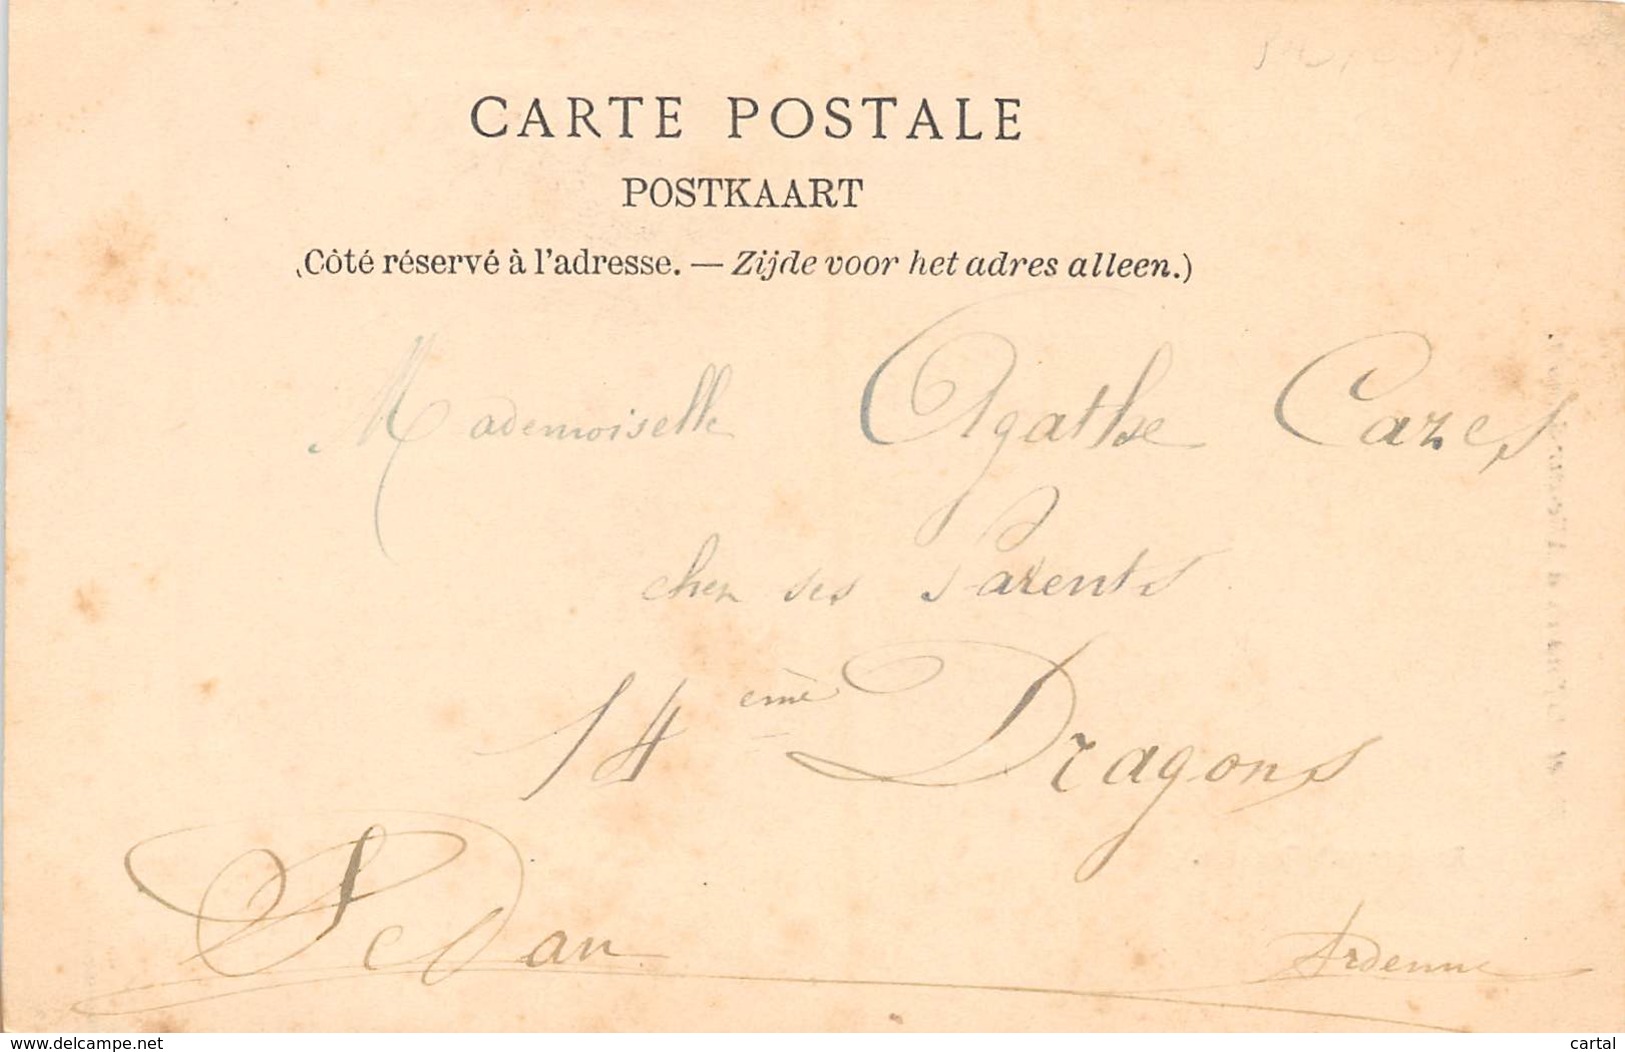 CARTE POSTALE
POSTKAART
(Côté réservé à l'adresse. — Zijde voor het adres alleen.)
Mademoiselle Agathe Cazes
chez ses Parents
14 ème Dragons
Sedan
Ardenne
www.delcampe.net
cartal